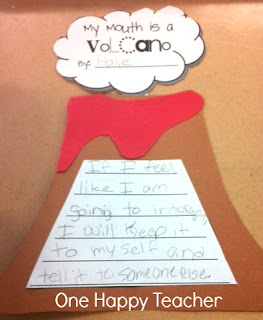 My Mouth is a
Volcano
By: Halle
If I feel
like I am
going to interupt
I will keep it
to my self and
tell it to someone else.
One Happy Teacher